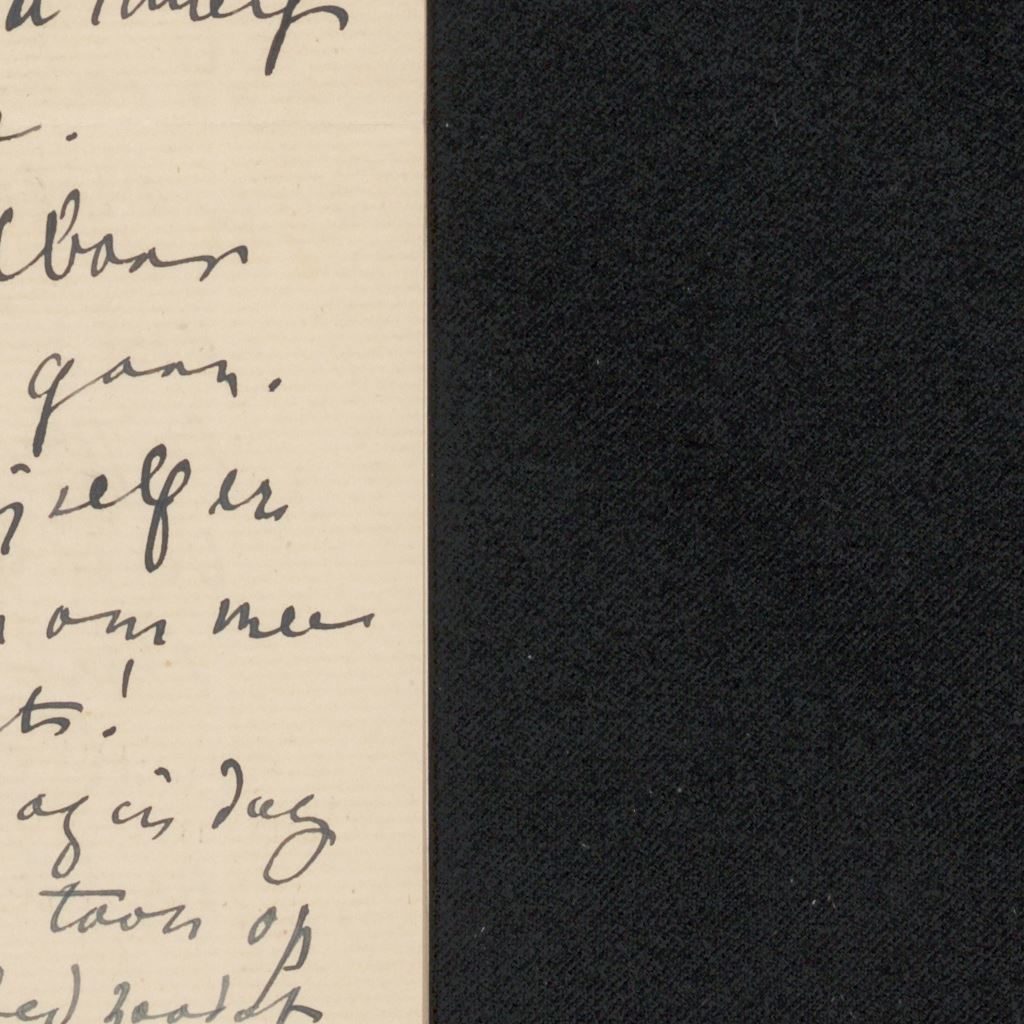 baar
gaan.
jself en
om mee
ts!
ag in dag
toon op
zoodat